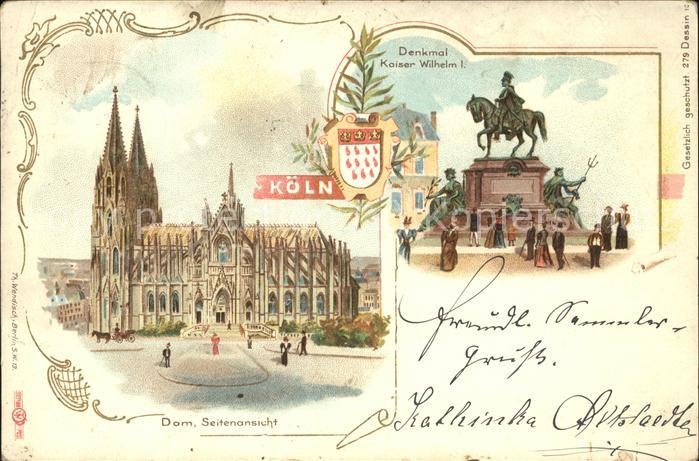 Denkmal
Kaiser Wilhelm I.
KÖLN
Gesetzlich geschützt. 279 Dessin
Th. Wendisch, Berlin, S.W. 12.
Dom, Seitenansicht
Freundl. Sammler-
gruß.
Kathinka